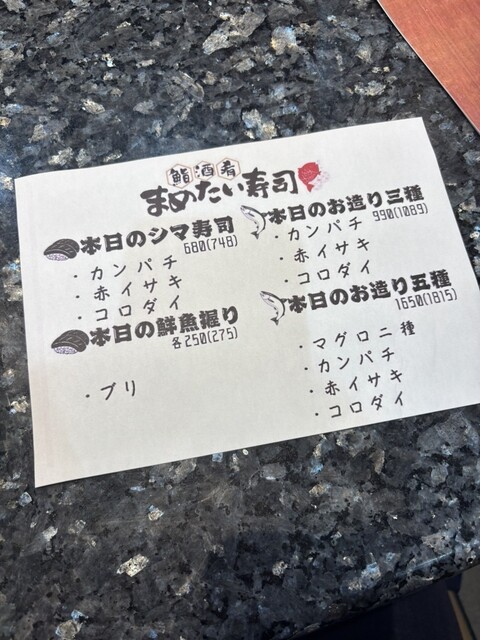 鮨酒肴
まめたい寿司
本日のシマ寿司
680(748)
・カンパチ
・赤イサキ
・コロダイ
本日の鮮魚握り
各250(275)
・ブリ
本日のお造り三種
990(1089)
・カンパチ
・赤イサキ
・コロダイ
本日のお造り五種
1650(1815)
・マグロ二種
・カンパチ
・赤イサキ
・コロダイ